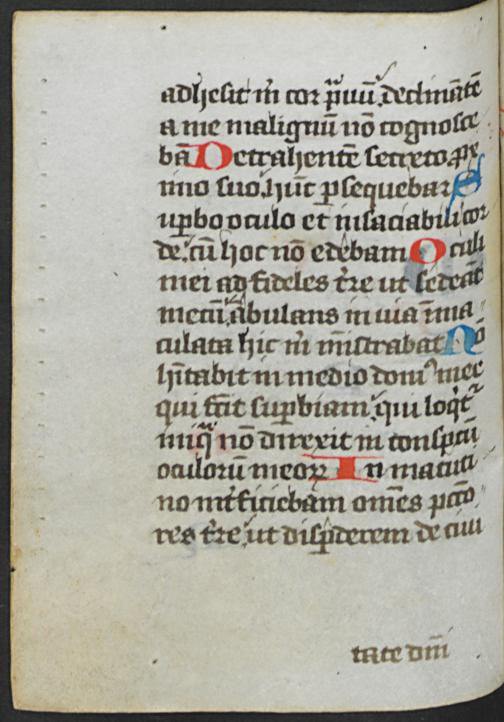 adhesit m̄ cor p̄uū declinātē
a me malignū nō cognosce
bā Detrahentē secreto ꝓxi
mo suo hūc ꝑsequebar S
uꝑbo oculo et insaciabili cor
de cū hoc nō edebam Oculi
mei ad fideles t̄re ut sedeāt
mecū ābulans in uia īma
culata hic m̄ ministrabat Nō
hītabit in medio dom⁹ mee
qui fcīt suꝑbiam qui loqt̄
iniq̄ nō direxit in conspcū
oculorū meoꝝ In matuti
no intficiebam omēs pcc̄o
res t̄re ut disꝑderem de ciui
tate dn̄i